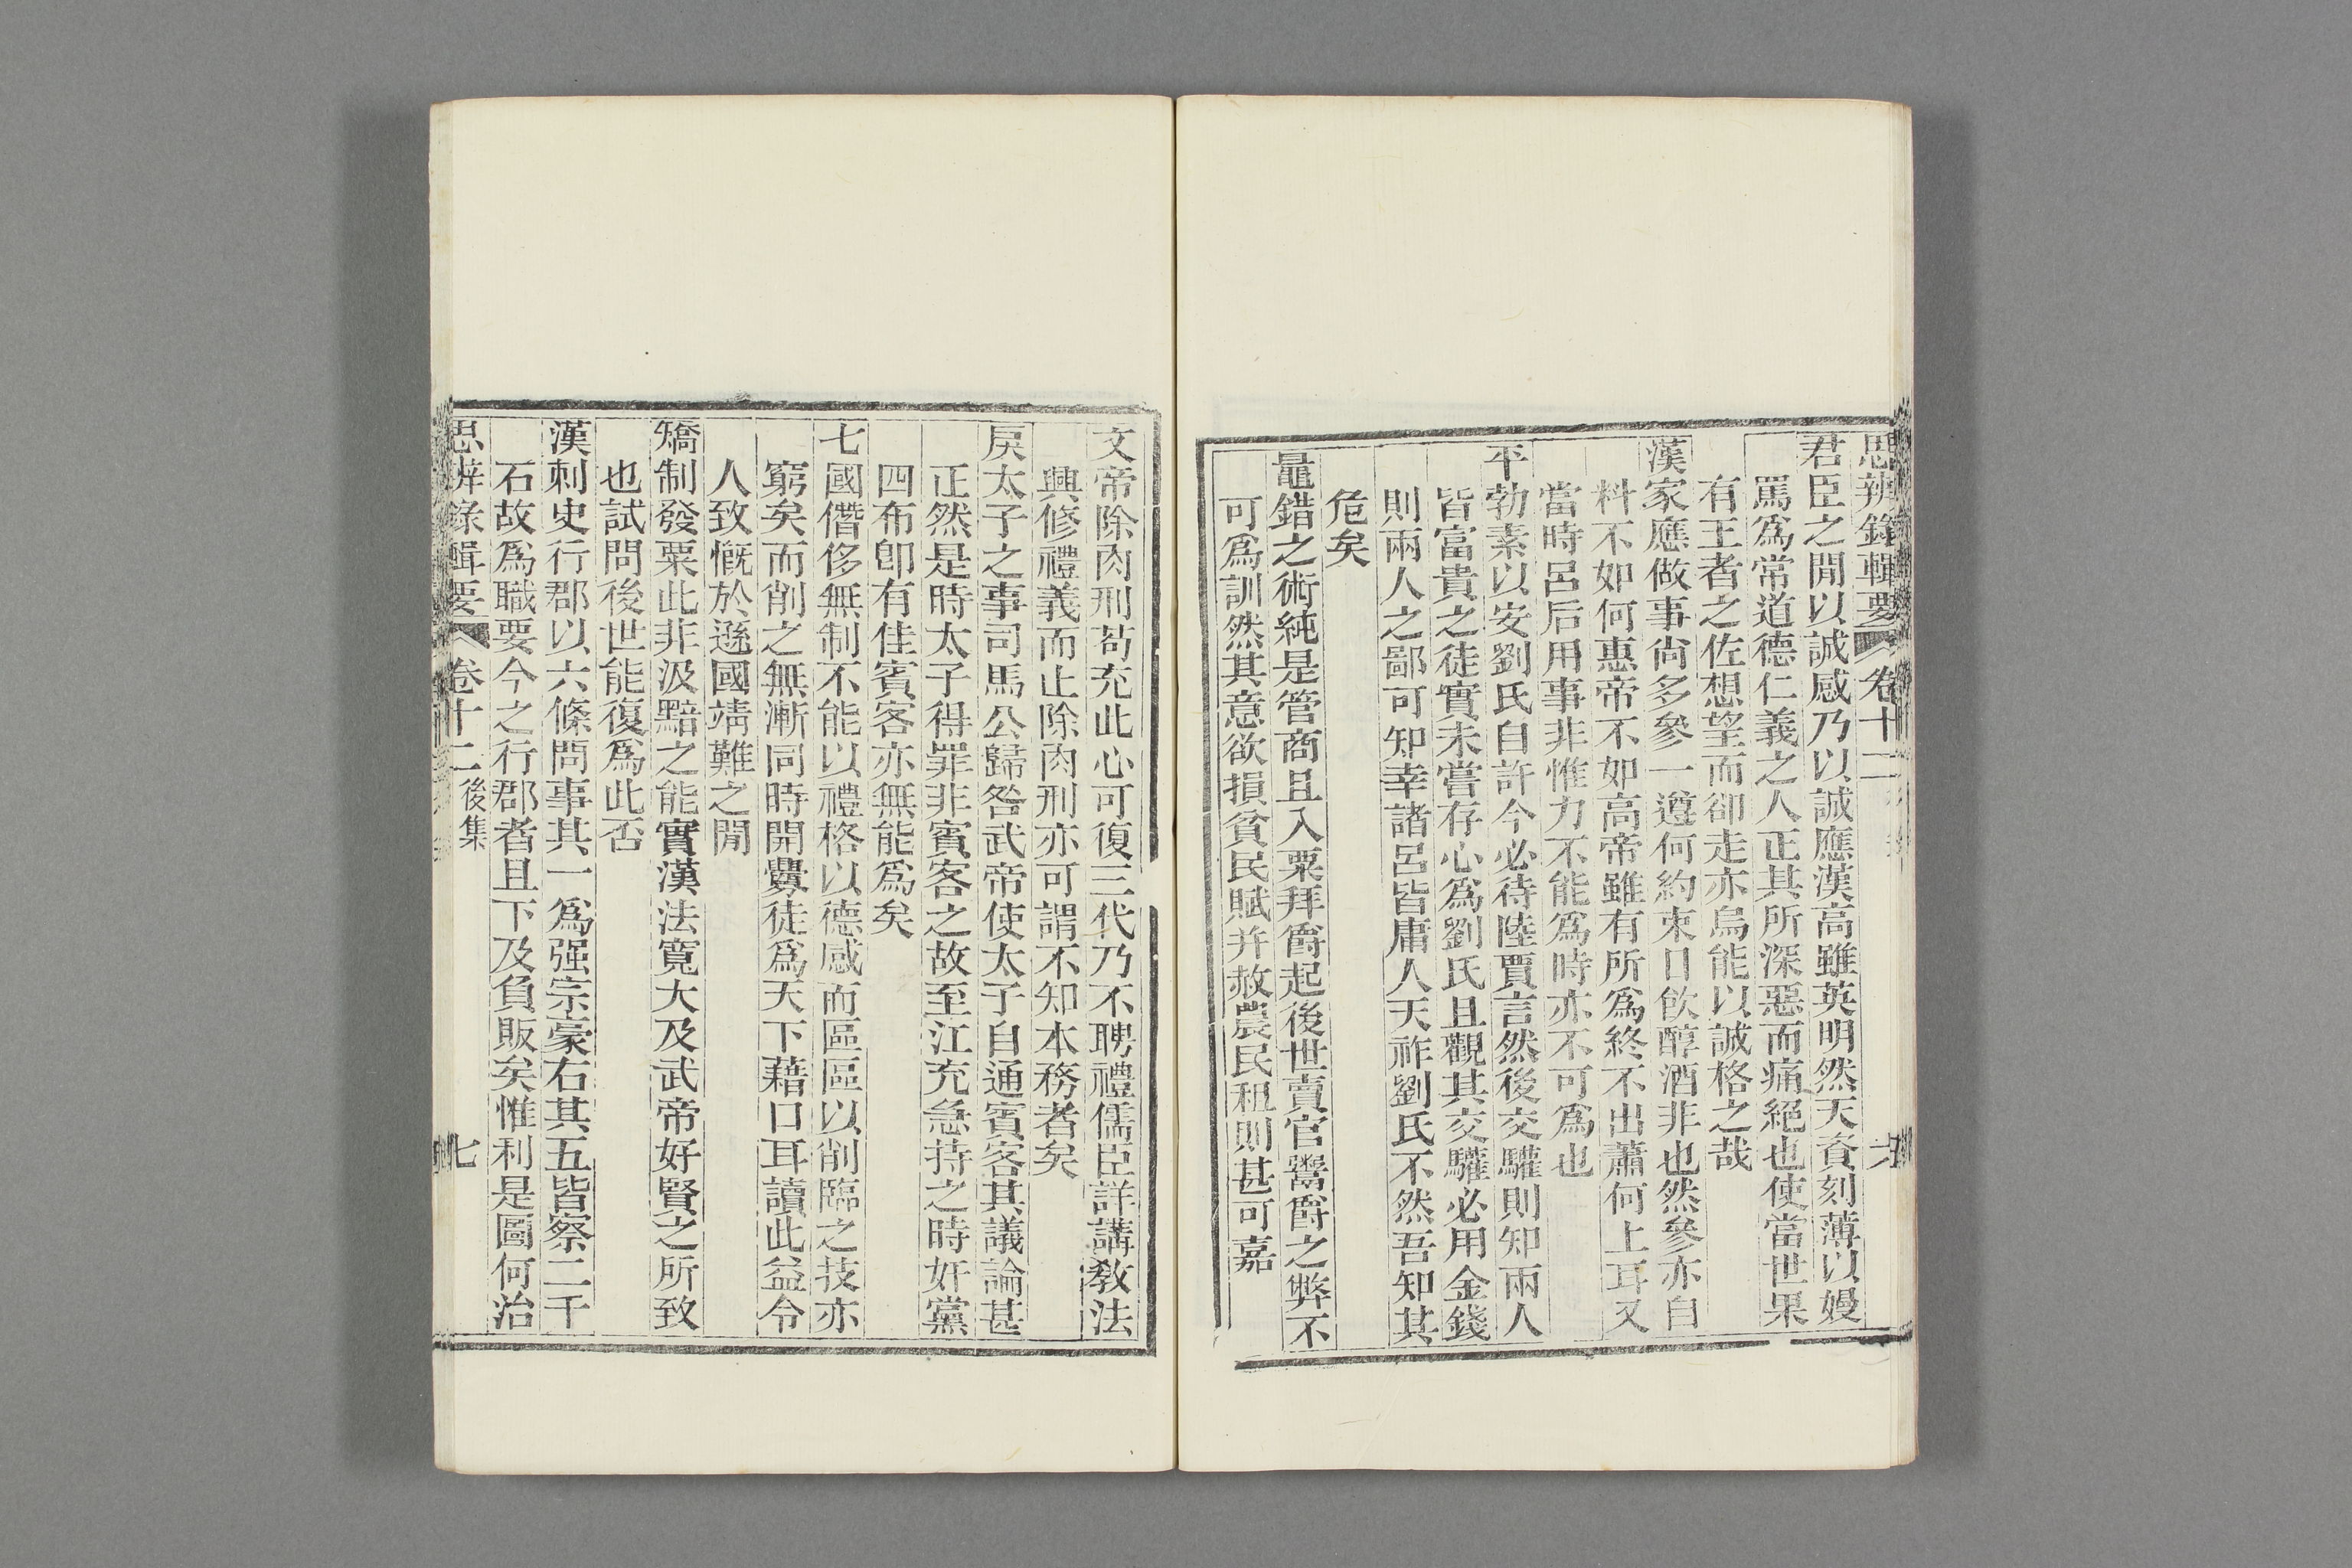 思辨錄輯要 卷十二 六
君臣之閒以誠感乃以誠應漢高雖英明然天資刻薄以嫚
罵爲常道德仁義之人正其所深惡而痛絕也使當世果
有王者之佐想望而卻走亦烏能以誠格之哉
漢家應做事尙多參一遵何約束日飮醇酒非也然參亦自
料不如何惠帝不如高帝雖有所爲終不出蕭何上耳又
當時呂后用事非惟力不能爲時亦不可爲也
平勃素以安劉氏自許今必待陸賈言然後交驩則知兩人
皆富貴之徒實未嘗存心爲劉氏且觀其交驩必用金錢
則兩人之鄙可知幸諸呂皆庸人天祚劉氏不然吾知其
危矣
鼂錯之術純是管商且入粟拜爵起後世賣官鬻爵之弊不
可爲訓然其意欲損貧民賦并赦農民租則甚可嘉
文帝除肉刑苟充此心可復三代乃不聘禮儒臣詳講敎法
興修禮義而止除肉刑亦可謂不知本務者矣
戾太子之事司馬公歸咎武帝使太子自通賓客其議論甚
正然是時太子得罪非賓客之故至江充急持之時奸黨
四布卽有佳賓客亦無能爲矣
七國僭侈無制不能以禮格以德感而區區以削臨之技亦
窮矣而削之無漸同時開釁徒爲天下藉口耳讀此益令
人致慨於遜國靖難之閒
矯制發粟此非汲黯之能實漢法寬大及武帝好賢之所致
也試問後世能復爲此否
漢刺史行郡以六條問事其一爲强宗豪右其五皆察二千
石故爲職要今之行郡者且下及負販矣惟利是圖何治
思辨錄輯要 卷十二後集 七